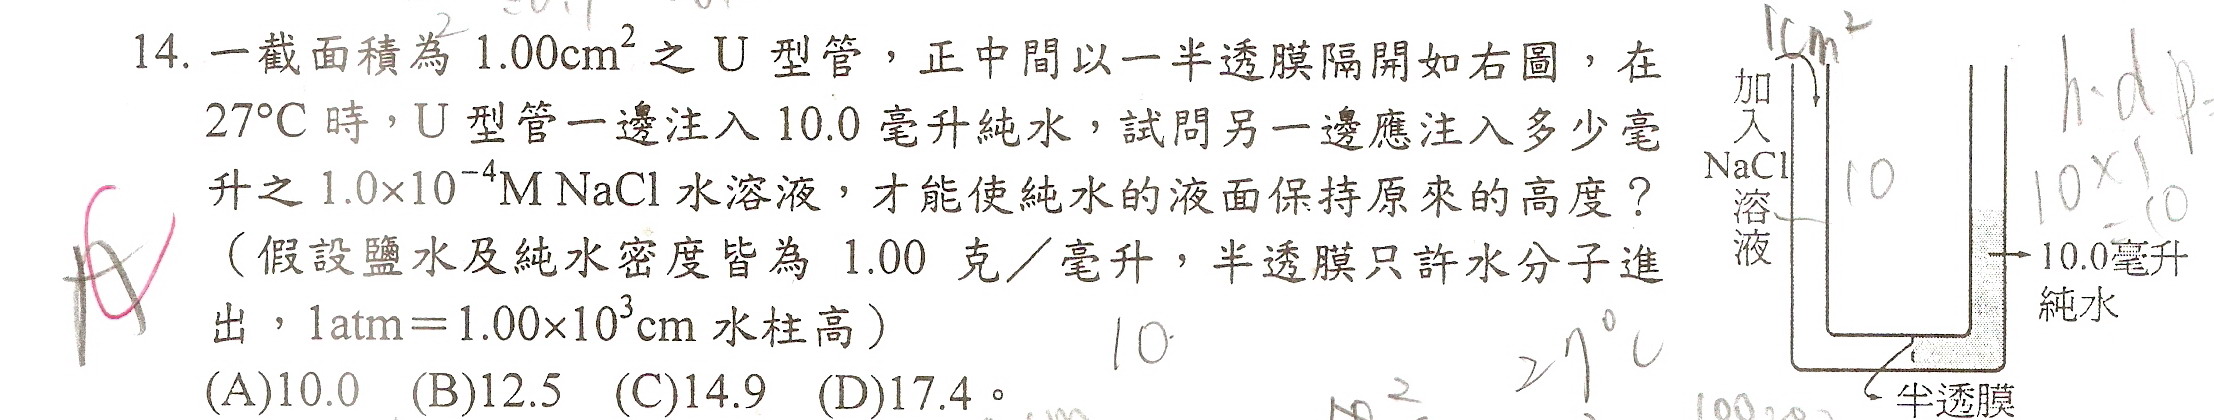 14. 一截面積為 1.00cm² 之 U 型管，正中間以一半透膜隔開如右圖，在
27°C 時，U 型管一邊注入 10.0 毫升純水，試問另一邊應注入多少毫
升之 1.0×10⁻⁴M NaCl 水溶液，才能使純水的液面保持原來的高度？
（假設鹽水及純水密度皆為 1.00 克／毫升，半透膜只許水分子進
出，1atm＝1.00×10³cm 水柱高）
(A)10.0 (B)12.5 (C)14.9 (D)17.4。
A
10
27°C
1cm²
加入NaCl溶液
10
h·d
10×1
=10
10.0毫升
純水
半透膜